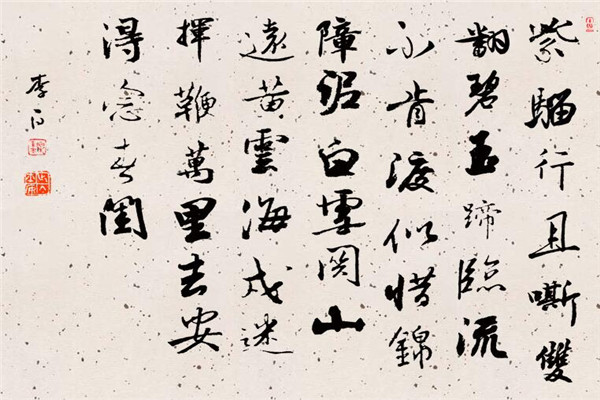 紫騮行且嘶雙
翻碧玉蹄臨流
不肯渡似惜錦
障泥白雪関山
遠黄雲海戍迷
揮鞭萬里去安
得念春閨
李白